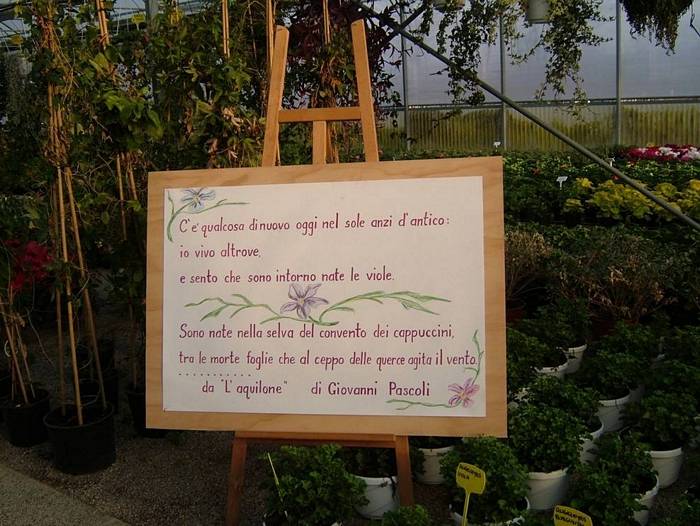 C'e' qualcosa di nuovo oggi nel sole anzi d'antico:
io vivo altrove,
e sento che sono intorno nate le viole.
Sono nate nella selva del convento dei cappuccini,
tra le morte foglie che al ceppo delle querce agita il vento.
............
da "L'aquilone" di Giovanni Pascoli